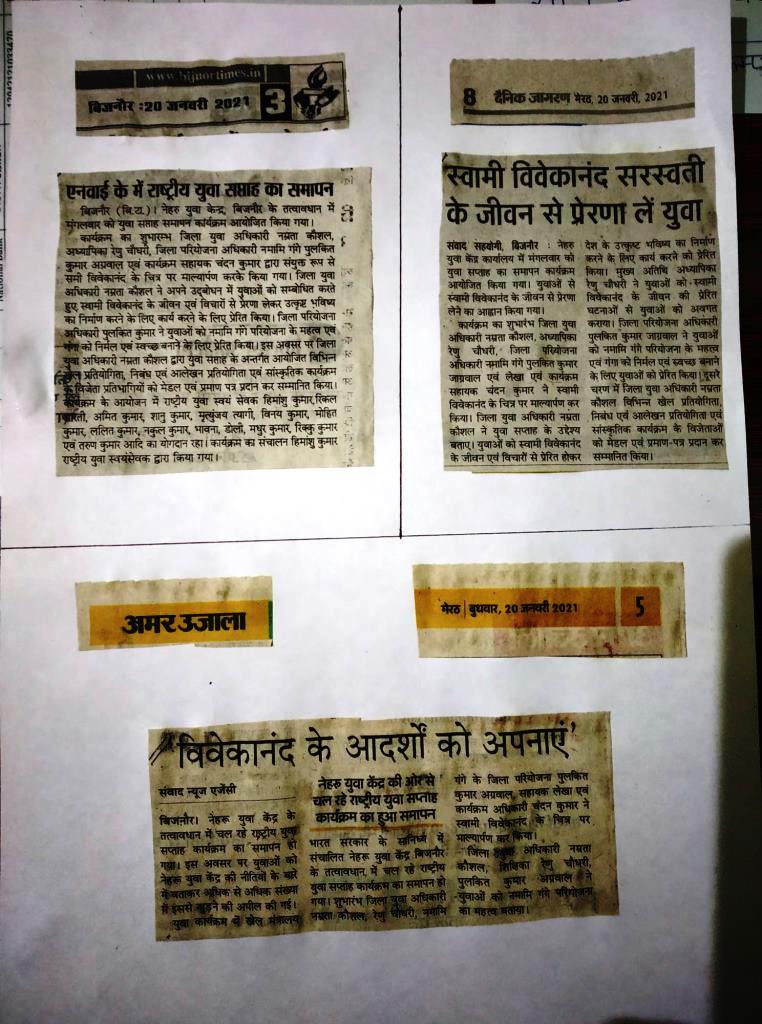 www.bijnortimes.in
बिजनौर :20 जनवरी 2021
3
एनवाई के में राष्ट्रीय युवा सप्ताह का समापन
बिजनौर (बि.टा.)। नेहरु युवा केन्द्र, बिजनौर के तत्वावधान में
मंगलवार को युवा सप्ताह समापन कार्यक्रम आयोजित किया गया।
कार्यक्रम का शुभारम्भ जिला युवा अधिकारी नम्रता कौशल,
अध्यापिका रेणु चौधरी, जिला परियोजना अधिकारी नमामि गंगे पुलकित
कुमार अग्रवाल एवं कार्यक्रम सहायक चंदन कुमार द्वारा संयुक्त रूप से
समी विवेकानन्द के चित्र पर माल्यार्पण करके किया गया। जिला युवा
अधिकारी नम्रता कौशल ने अपने उद्बोधन में युवाओं को सम्बोधित करते
हुए स्वामी विवेकानन्द के जीवन एवं विचारों से प्रेरणा लेकर उत्कृष्ट भविष्य
का निर्माण करने के लिए कार्य करने के लिए प्रेरित किया। जिला परियोजना
अधिकारी पुलकित कुमार ने युवाओं को नमामि गंगे परियोजना के महत्व एवं
गंगा को निर्मल एवं स्वच्छ बनाने के लिए प्रेरित किया। इस अवसर पर जिला
युवा अधिकारी नम्रता कौशल द्वारा युवा सप्ताह के अन्तर्गत आयोजित विभिन्न
खेल प्रतियोगिता, निबंध एवं आलेखन प्रतियोगिता एवं सांस्कृतिक कार्यक्रम
के विजेता प्रतिभागियों को मेडल एवं प्रमाण पत्र प्रदान कर सम्मानित किया।
कार्यक्रम के आयोजन में राष्ट्रीय युवा स्वयं सेवक हिमांशु कुमार,रिकल
भारती, अमित कुमार, शानु कुमार, मृत्युंजय त्यागी, विनय कुमार, मोहित
कुमार, ललित कुमार, नकुल कुमार, भावना, डोली, मधुर कुमार, रिक्कु कुमार
एवं तरुण कुमार आदि का योगदान रहा। कार्यक्रम का संचालन हिमांशु कुमार
राष्ट्रीय युवा स्वयंसेवक द्वारा किया गया।
8 दैनिक जागरण मेरठ, 20 जनवरी, 2021
स्वामी विवेकानंद सरस्वती
के जीवन से प्रेरणा लें युवा
संवाद सहयोगी, बिजनौर : नेहरु
युवा केंद्र कार्यालय में मंगलवार को
युवा सप्ताह का समापन कार्यक्रम
आयोजित किया गया। युवाओं से
स्वामी विवेकानंद के जीवन से प्रेरणा
लेने का आह्वान किया गया।
कार्यक्रम का शुभारंभ जिला युवा
अधिकारी नम्रता कौशल, अध्यापिका
रेणु चौधरी, जिला परियोजना
अधिकारी नमामि गंगे पुलकित कुमार
जाग्रवाल एवं लेखा एवं कार्यक्रम
सहायक चंदन कुमार ने स्वामी
विवेकानंद के चित्र पर माल्यार्पण कर
किया। जिला युवा अधिकारी नम्रता
कौशल ने युवा सप्ताह के उद्देश्य
बताए। युवाओं को स्वामी विवेकानंद
के जीवन एवं विचारों से प्रेरित होकर
देश के उत्कृष्ट भविष्य का निर्माण
करने के लिए कार्य करने को प्रेरित
किया। मुख्य अतिथि अध्यापिका
रेणु चौधरी ने युवाओं को स्वामी
विवेकानंद के जीवन की प्रेरित
घटनाओं से युवाओं को अवगत
कराया। जिला परियोजना अधिकारी
पुलकित कुमार जाग्रवाल ने युवाओं
को नमामि गंगे परियोजना के महत्व
एवं गंगा को निर्मल एवं स्वच्छ बनाने
के लिए युवाओं को प्रेरित किया। दूसरे
चरण में जिला युवा अधिकारी नम्रता
कौशल विभिन्न खेल प्रतियोगिता,
निबंध एवं आलेखन प्रतियोगिता एवं
सांस्कृतिक कार्यक्रम के विजेताओं
को मेडल एवं प्रमाण-पत्र प्रदान कर
सम्मानित किया।
अमर उजाला
मेरठ | बुधवार, 20 जनवरी 2021
5
'विवेकानंद के आदर्शों को अपनाएं'
संवाद न्यूज एजेंसी
बिजनौर। नेहरू युवा केंद्र के
तत्वावधान में चल रहे राष्ट्रीय युवा
सप्ताह कार्यक्रम का समापन हो
गया। इस अवसर पर युवाओं को
नेहरू युवा केंद्र की नीतियों के बारे
में बताकर अधिक से अधिक संख्या
में इससे जुड़ने की अपील की गई।
युवा कार्यक्रम में खेल मंत्रालय
नेहरू युवा केंद्र की ओर से
चल रहे राष्ट्रीय युवा सप्ताह
कार्यक्रम का हुआ समापन
भारत सरकार के सानिध्य में
संचालित नेहरू युवा केंद्र बिजनौर
के तत्वावधान में चल रहे राष्ट्रीय
युवा सप्ताह कार्यक्रम का समापन हो
गया। शुभारंभ जिला युवा अधिकारी
नम्रता कौशल, रेणु चौधरी, नमामि
गंगे के जिला परियोजना पुलकित
कुमार अग्रवाल, सहायक लेखा एवं
कार्यक्रम अधिकारी चंदन कुमार ने
स्वामी विवेकानंद के चित्र पर
माल्यार्पण कर किया।
जिला युवा अधिकारी नम्रता
कौशल, शिक्षिका रेणु चौधरी,
पुलकित कुमार अग्रवाल ने
युवाओं को नमामि गंगे परियोजना
का महत्व बताया।